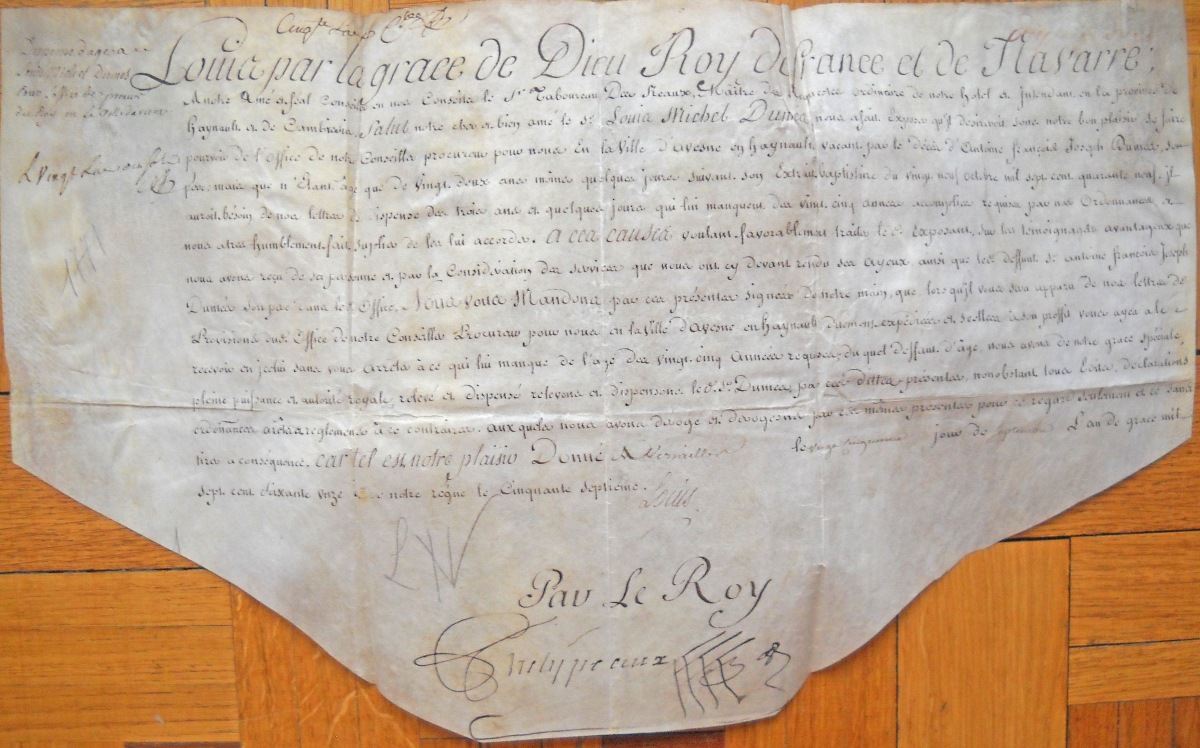 Louis par la grace de Dieu Roy de France et de Navarre;
Dispense d'age
A notre Amé et féal Conseiller en nos Conseils le Sr. Taboureau Des Reaux, Maître des Requetes ordinaire de notre hotel et Intendant en la province de
haynault et de Cambresis, Salut notre cher et bien amé le Sr. Louis Michel Dumées nous a fait Exposer qu'il désireroit sous notre bon plaisir se faire
pourvoir de l'Office de notre Conseiller procureur pour nous En la Ville d'avesne en haynault, vacant par le décès d'Antoine françois Joseph Dumées, son
père, mais que n'Etant agé que de Vingt deux ans moins quelques jours suivant son Extrait baptistaire du vingt neuf octobre mil sept cent quarante neuf, il
auroit besoin de nos lettres de dispense des trois ans et quelques jours qui lui manquent des vint cinq années accomplies requises par nos Ordonnances
nous a tres humblement fait suplier de les lui accorder. A ces causes voulant favorablement traiter le d. Exposant, sur les témoignages avantageux que
nous avons reçu de sa personne et par la Considération des services que nous ont cy devant rendu ses ayeux ainsi que led. deffunt Sr. antoine françois Joseph
Dumées son pere dans led. Office, Nous vous Mandons par ces présentes signées de notre main, que lors qu'il vous sera apparu de nos lettres de
Provisions dud. Office de notre Conseiller Procureur pour nous en la Ville d'avesne en haynault expédiées et scellées à son proffit vous ayés à le
recevoir en icelui sans vous arreter à ce qui lui manque de l'age des vingt cinq Années requises, du quel deffaut d'age, nous avons de notre grace spéciale,
pleine puissance et autorité royale relevé et dispensé relevons et dispensons led. Sr. Dumées, par ces dittes présentes, nonobstant tous Edits, déclarations
ordonnances arrets et reglemens à ce contraires. aux quels nous avons derogé et derogeons par ces mêmes presentes pour ce regard seulement et sans
tirer a conséquence. Car tel est notre plaisir Donné A Versailles le jour de L'an de grace mil
sept cent soixante Unze et de notre regne le Cinquante septième.
Louis
Par Le Roy
Phelypeaux